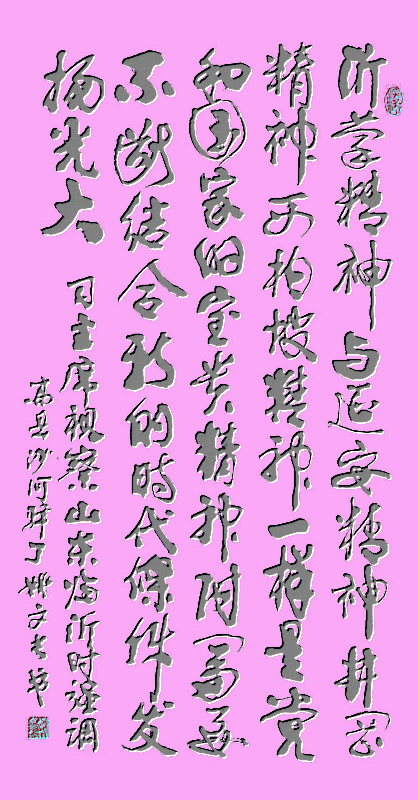 沂蒙精神与延安精神井冈
精神西柏坡精神一样是党
和国家的宝贵精神财富要
不断结合新的時代條件发
扬光大
习主席视察山东临沂时强调
高县沙河驿丁姚文书